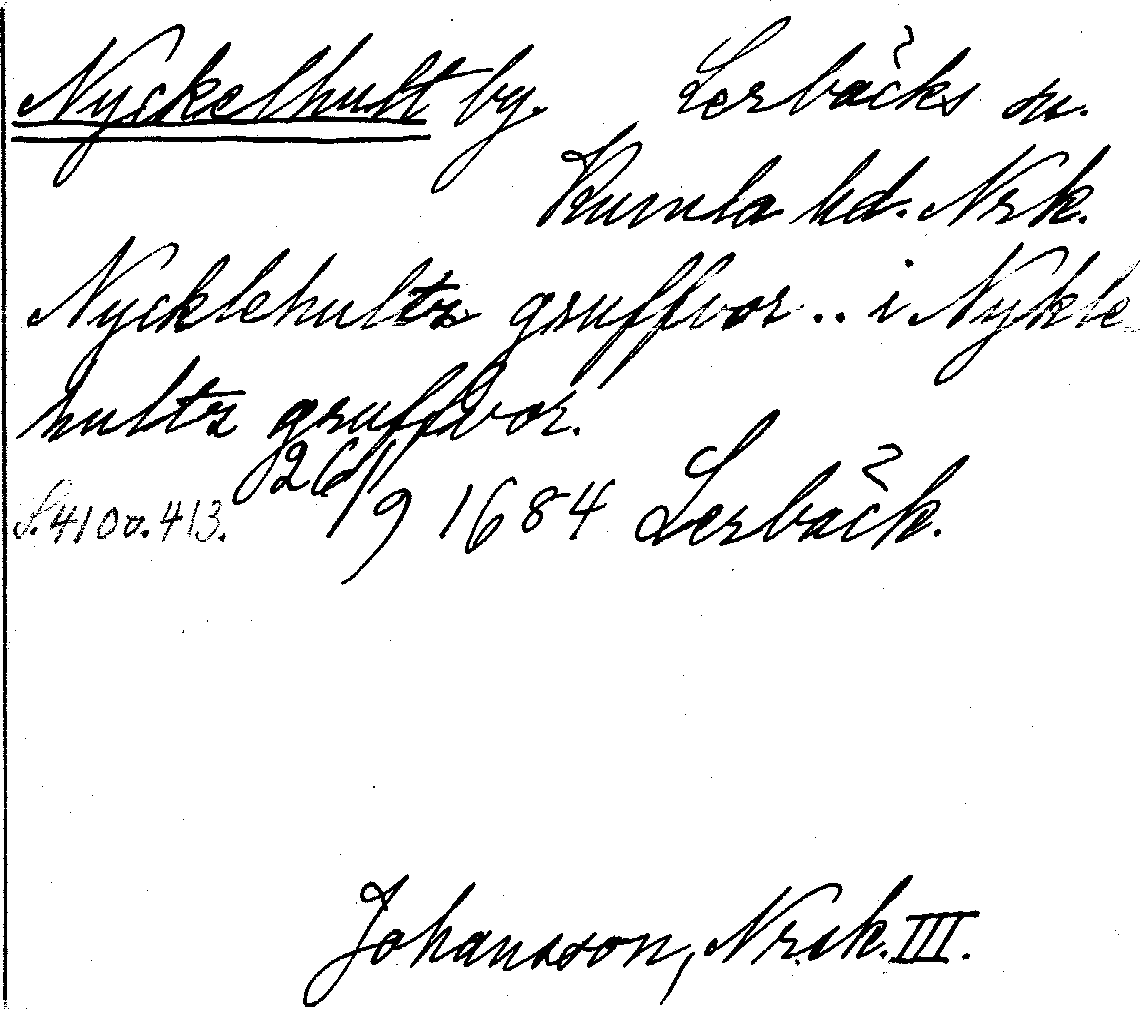 Nyckelhult by. Lerbäcks sn.
Kumla hd. Nrk.
Nycklehultz gruffvor .. i Nykle
hultz gruffvor.
S. 410 o. 413. 26/9 1684 Lerbäck.
Johansson, Nrck. III.